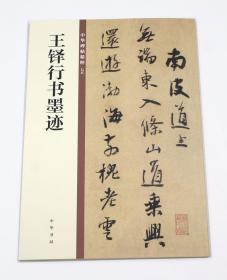 王铎行书墨迹
中华碑帖精粹
中华书局
南皮道上
無端東入條山道乘興
還遊渤海
老雲